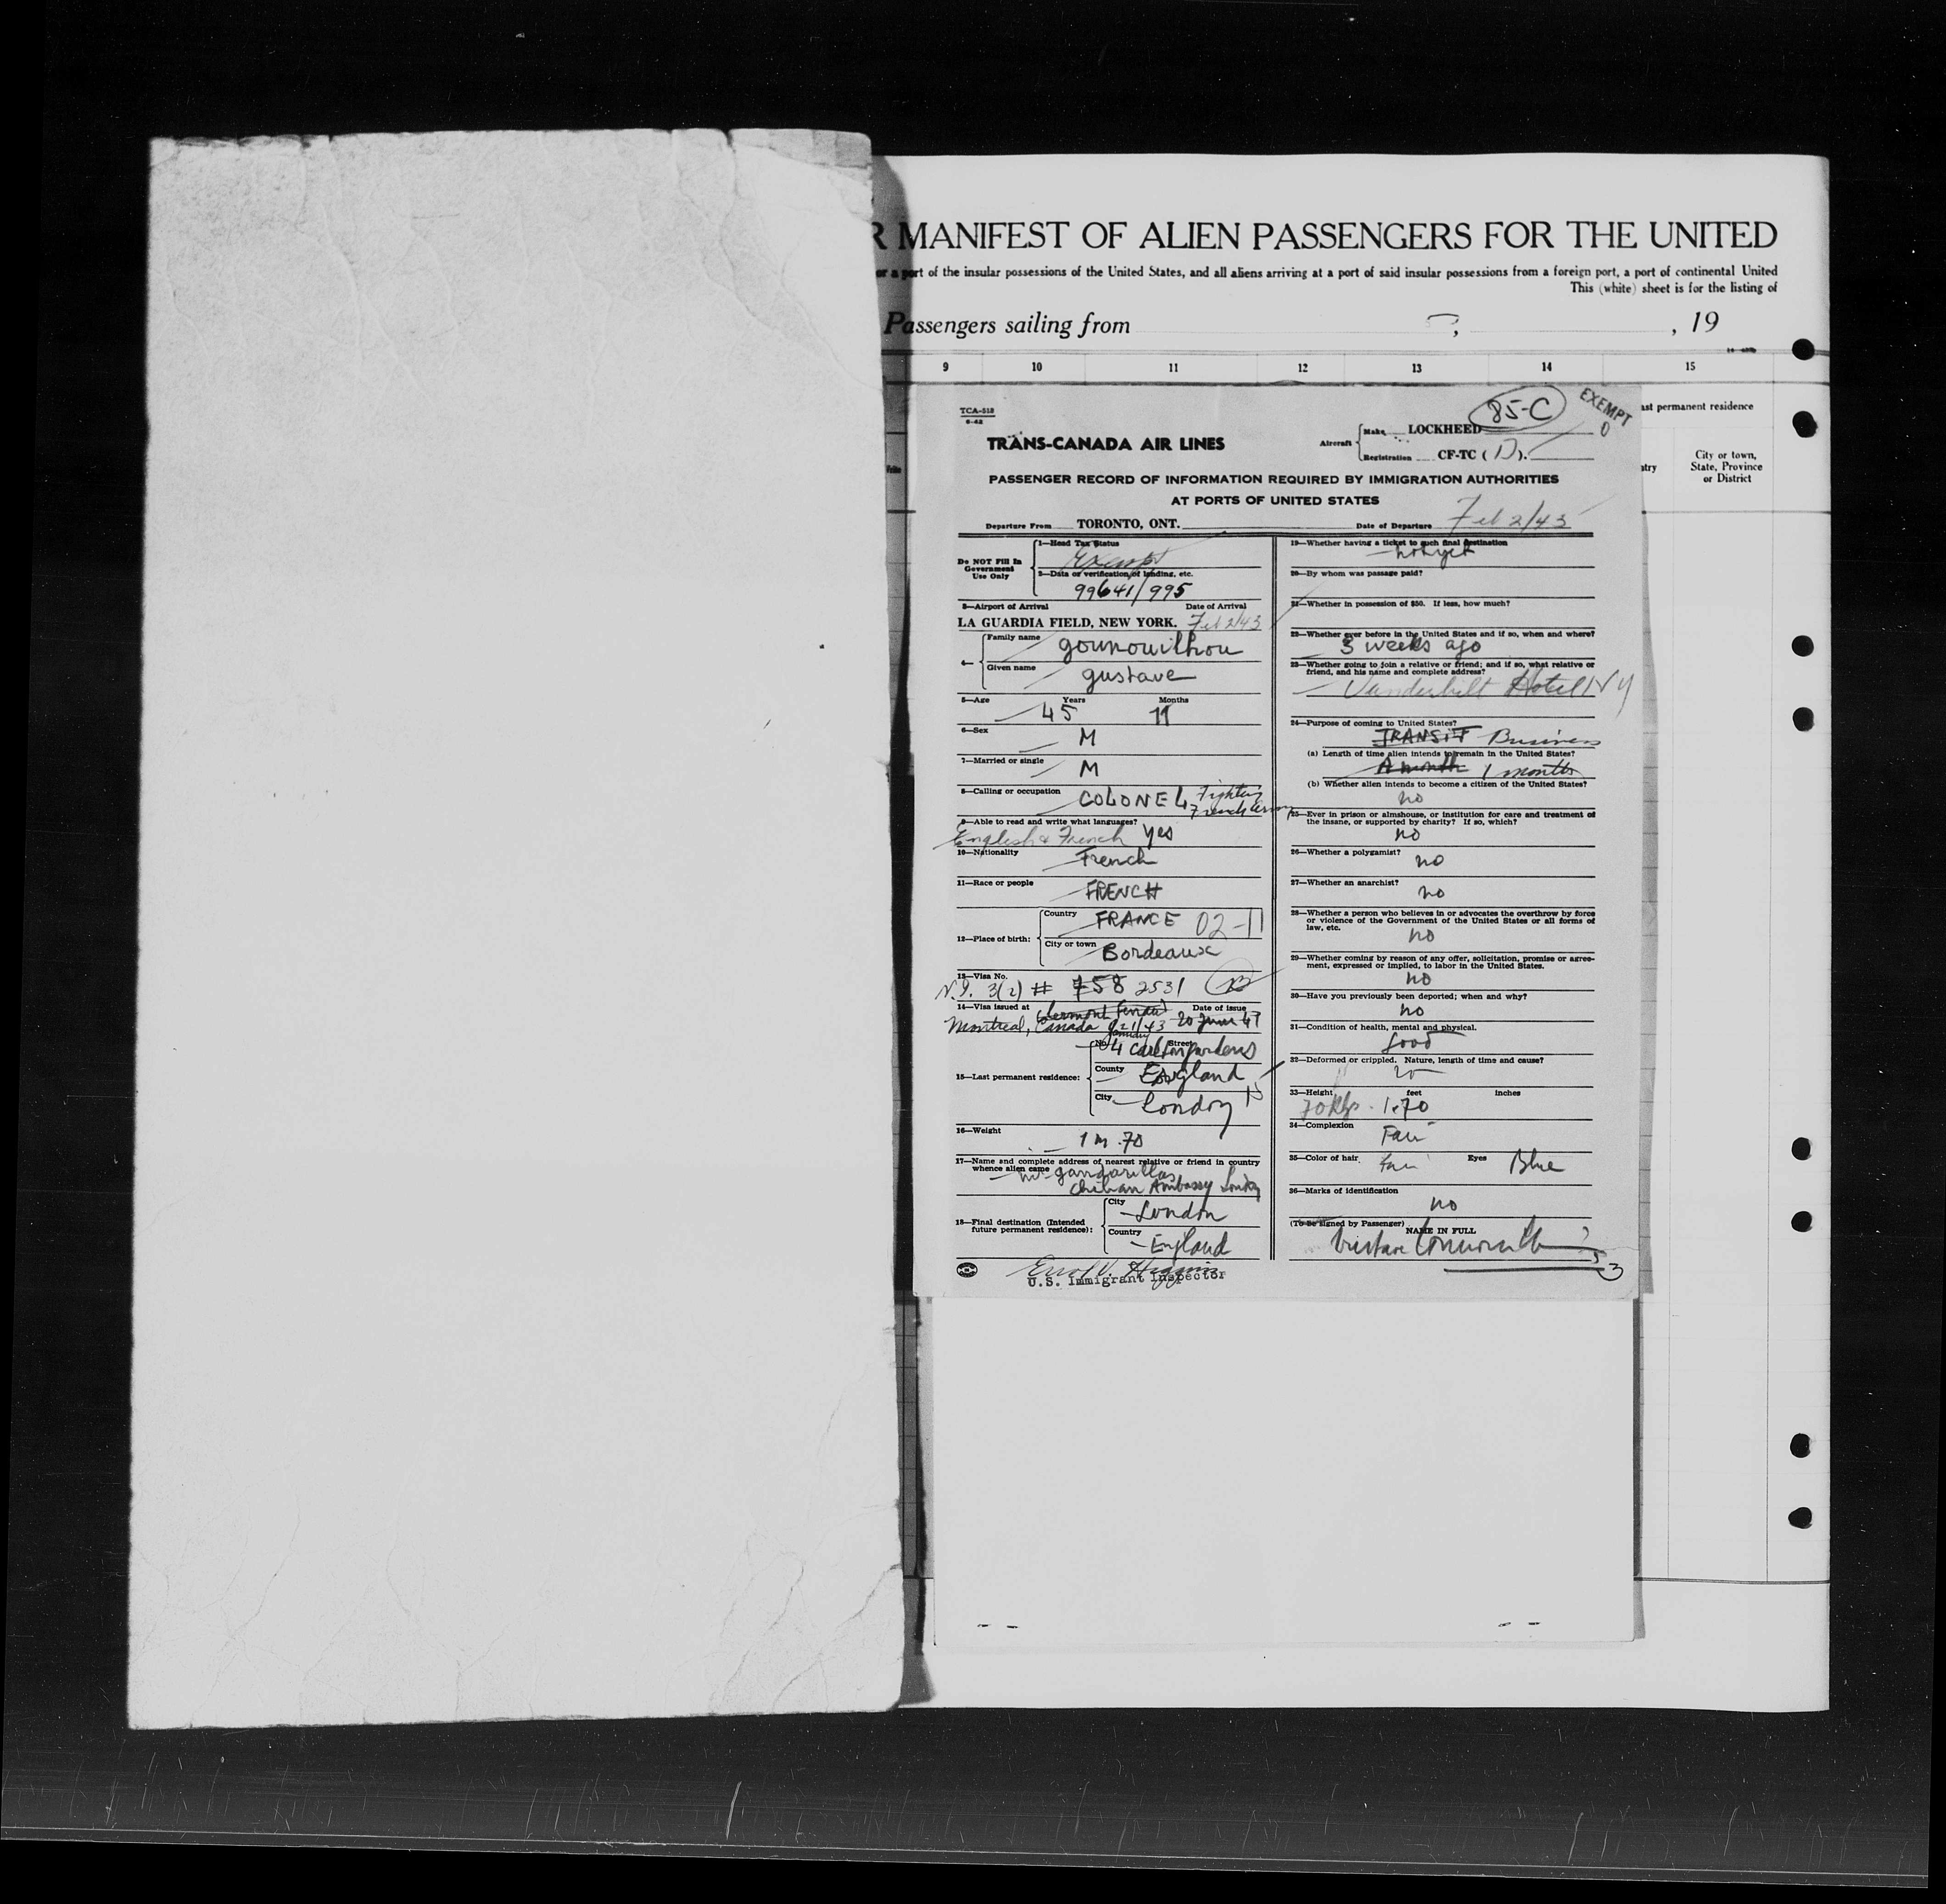 R MANIFEST OF ALIEN PASSENGERS FOR THE UNITED
or a port of the insular possessions of the United States, and all aliens arriving at a port of said insular possessions from a foreign port, a port of continental United
This (white) sheet is for the listing of
Passengers sailing from , 19
9 10 11 12 13 14 15
ast permanent residence
City or town,
State, Province
or District
TCA-518
6-42
85-C
EXEMPT
0
TRANS-CANADA AIR LINES
Aircraft
Make LOCKHEED
Registration CF-TC (D).
PASSENGER RECORD OF INFORMATION REQUIRED BY IMMIGRATION AUTHORITIES
AT PORTS OF UNITED STATES
Departure From TORONTO, ONT. Date of Departure Feb 2/43
Do NOT Fill In
Government
Use Only
1—Head Tax Status
Exempt
2—Data or verification of landing, etc.
99641/995
3—Airport of Arrival Date of Arrival
LA GUARDIA FIELD, NEW YORK. Feb 2/43
4— Family name gounouilhou
Given name gustave
5—Age Years Months
45 11
6—Sex M
7—Married or single M
8—Calling or occupation COLONEL Fighting
French Army
9—Able to read and write what languages?
English & French yes
10—Nationality French
11—Race or people FRENCH
12—Place of birth:
Country FRANCE 02-11
City or town Bordeaux
13—Visa No.
N.I. 3(2) # 758 2531
14—Visa issued at Clermont Ferrand Date of issue
Montreal, Canada 1/21/43 20 June 41
15—Last permanent residence:
No. Street 4 Carlton gardens
County England
City London
16—Weight 1 m .70
17—Name and complete address of nearest relative or friend in country
whence alien came Mr gandarillas
Chilian Ambassy London
18—Final destination (Intended
future permanent residence):
City London
Country England
Errol V. Higgins
U.S. Immigrant Inspector
19—Whether having a ticket to such final destination
not yet
20—By whom was passage paid?
21—Whether in possession of $50. If less, how much?
22—Whether ever before in the United States and if so, when and where?
3 weeks ago
23—Whether going to join a relative or friend; and if so, what relative or
friend, and his name and complete address?
Vanderbilt Hotel NY
24—Purpose of coming to United States?
TRANSIT Business
(a) Length of time alien intends to remain in the United States?
A month 1 month
(b) Whether alien intends to become a citizen of the United States?
no
25—Ever in prison or almshouse, or institution for care and treatment of
the insane, or supported by charity? If so, which?
no
26—Whether a polygamist?
no
27—Whether an anarchist?
no
28—Whether a person who believes in or advocates the overthrow by force
or violence of the Government of the United States or all forms of
law, etc.
no
29—Whether coming by reason of any offer, solicitation, promise or agree-
ment, expressed or implied, to labor in the United States.
no
30—Have you previously been deported; when and why?
no
31—Condition of health, mental and physical.
good
32—Deformed or crippled. Nature, length of time and cause?
no
33—Height feet inches
70 Kgs. 1.70
34—Complexion
Fair
35—Color of hair fair Eyes Blue
36—Marks of identification
no
(To be signed by Passenger)
NAME IN FULL
Gustave Gounouilhou
3